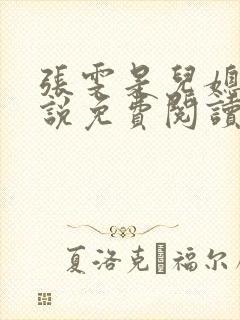 張雯呆兒媳
說免費閱讀
夏洛克·福尔